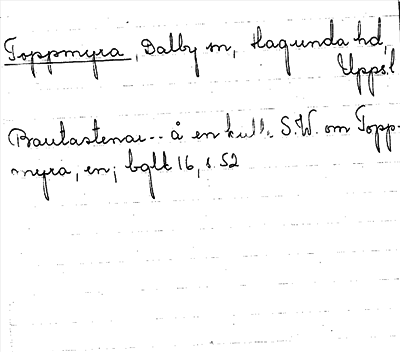 Toppmyra, Dalby sn, Hagunda hd,
Upps.l
Bautastenar-- å en kulle S.W. om Topp-
myra, en; bglt 16, s. 52